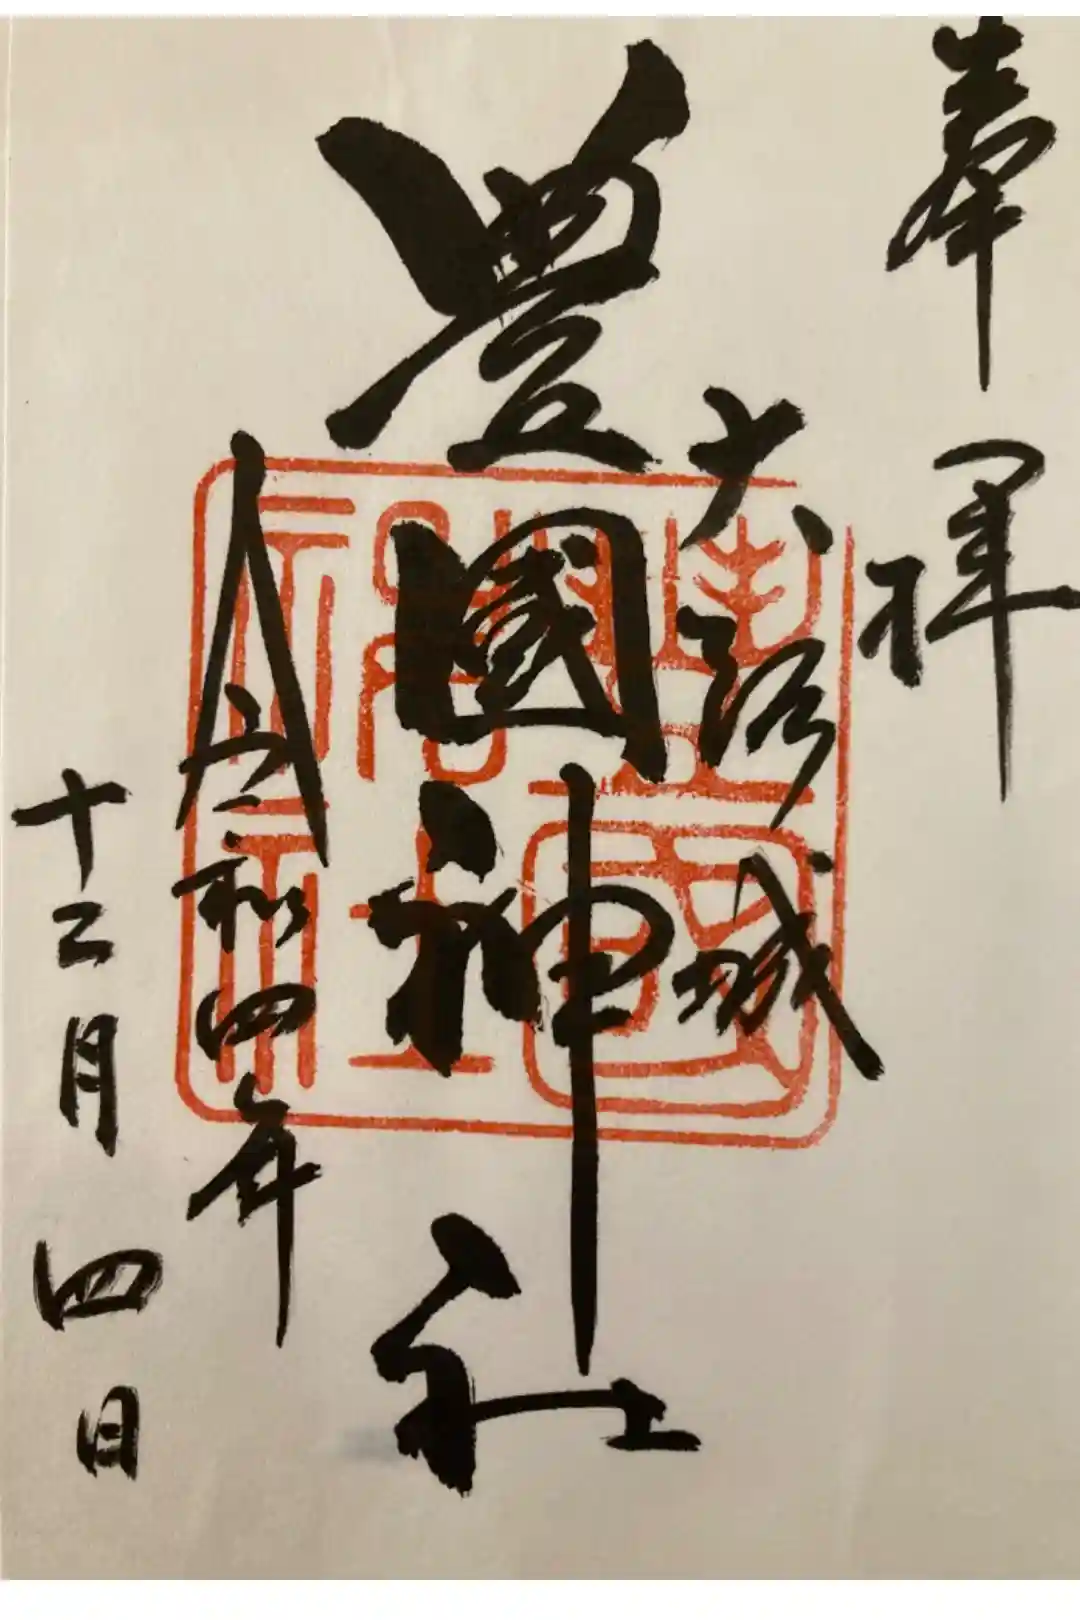 奉拝
大阪城
豊國神社
令和四年
十二月四日
豐國
神社